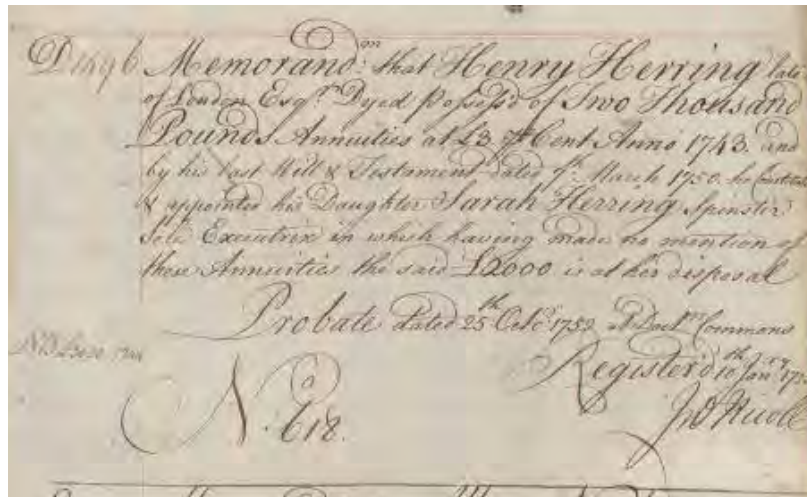 D1496 Memorand.m that Henry Herring late
of London Esq.r Dyed Possess'd of Two Thousand
Pounds Annuities at £3 ₱ Cent Anno 1743. and
by his Last Will & Testament dated 7.th March 1750. he Constitute
& appointed his Daughter Sarah Herring Spinster
Sole Executrix in which having made no mention of
those Annuities the said £2000 is at her disposal
Probate dated 25.th Octo.r 1752 at Doct.rs Commons
Register'd 10.th Jan.ry 175
N.o 618.